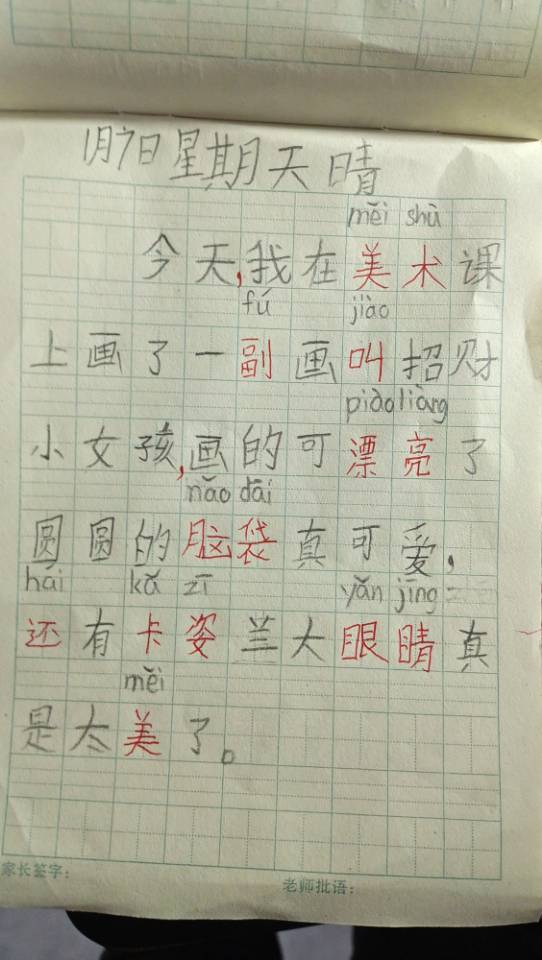 1月7日星期天晴
měi shù
今天,我在美术课
fú jiào
上画了一副画叫招财
piào liàng
小女孩,画的可漂亮了
nǎo dāi
圆圆的脑袋真可爱,
hái kǎ zī yǎn jīng
还有卡姿兰大眼睛真
měi
是太美了。
家长签字:
老师批语: